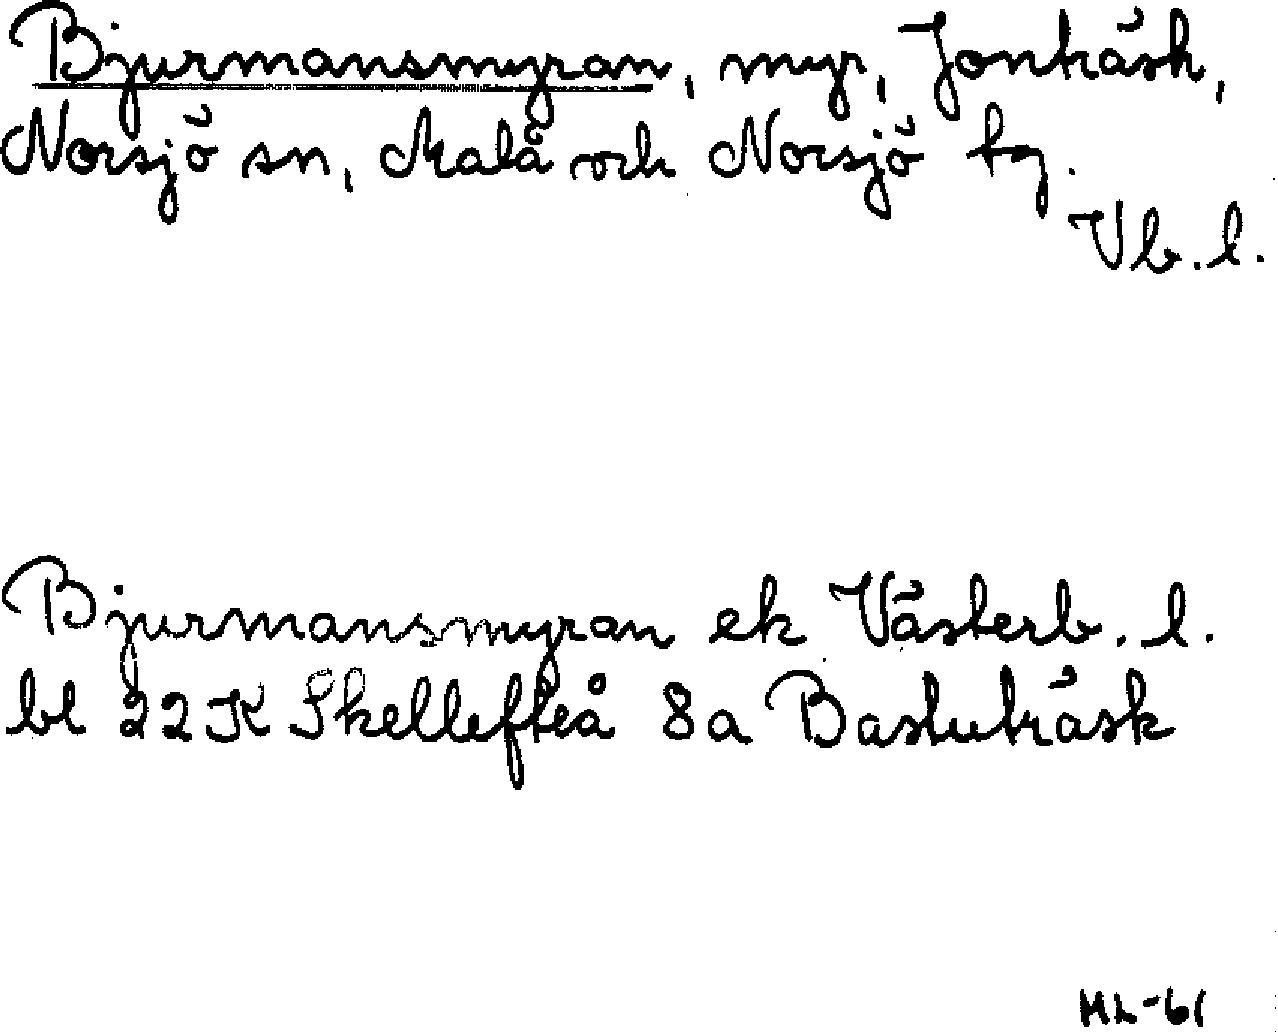 Bjurmansmyran, myr, Jonträsk,
Norsjö sn, Malå och Norsjö tg.
Vb. l.
Bjurmansmyran ek Västerb. l.
bl 22K Skellefteå 8a Bastuträsk
ML-61